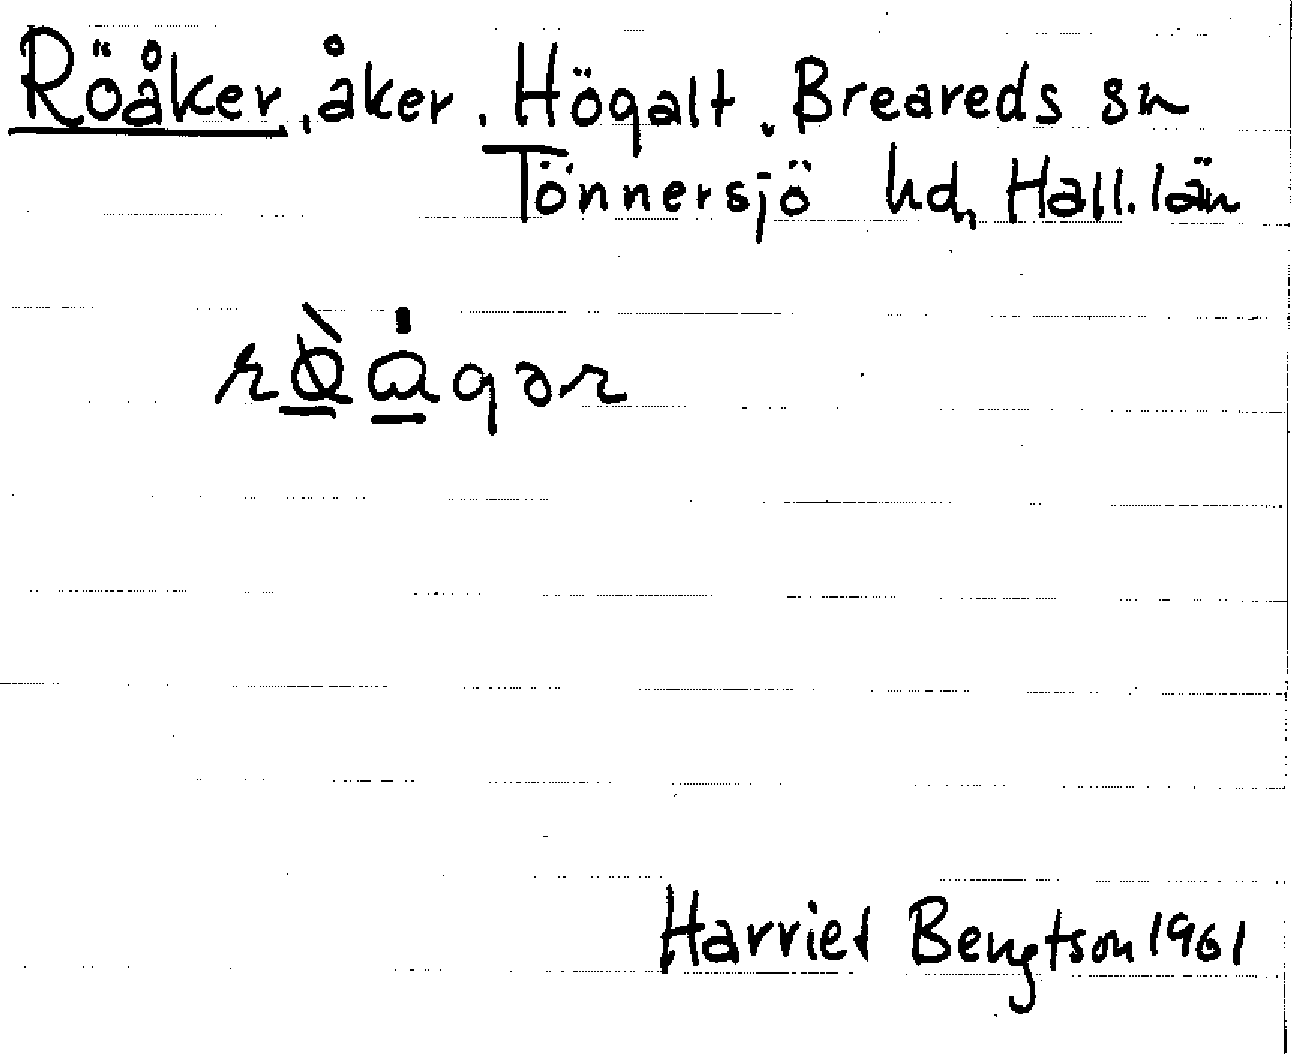 Röåker, åker. Högalt. Breareds sn
Tönnersjö hd, Hall. län
rø̀ågər
Harriet Bengtson 1961